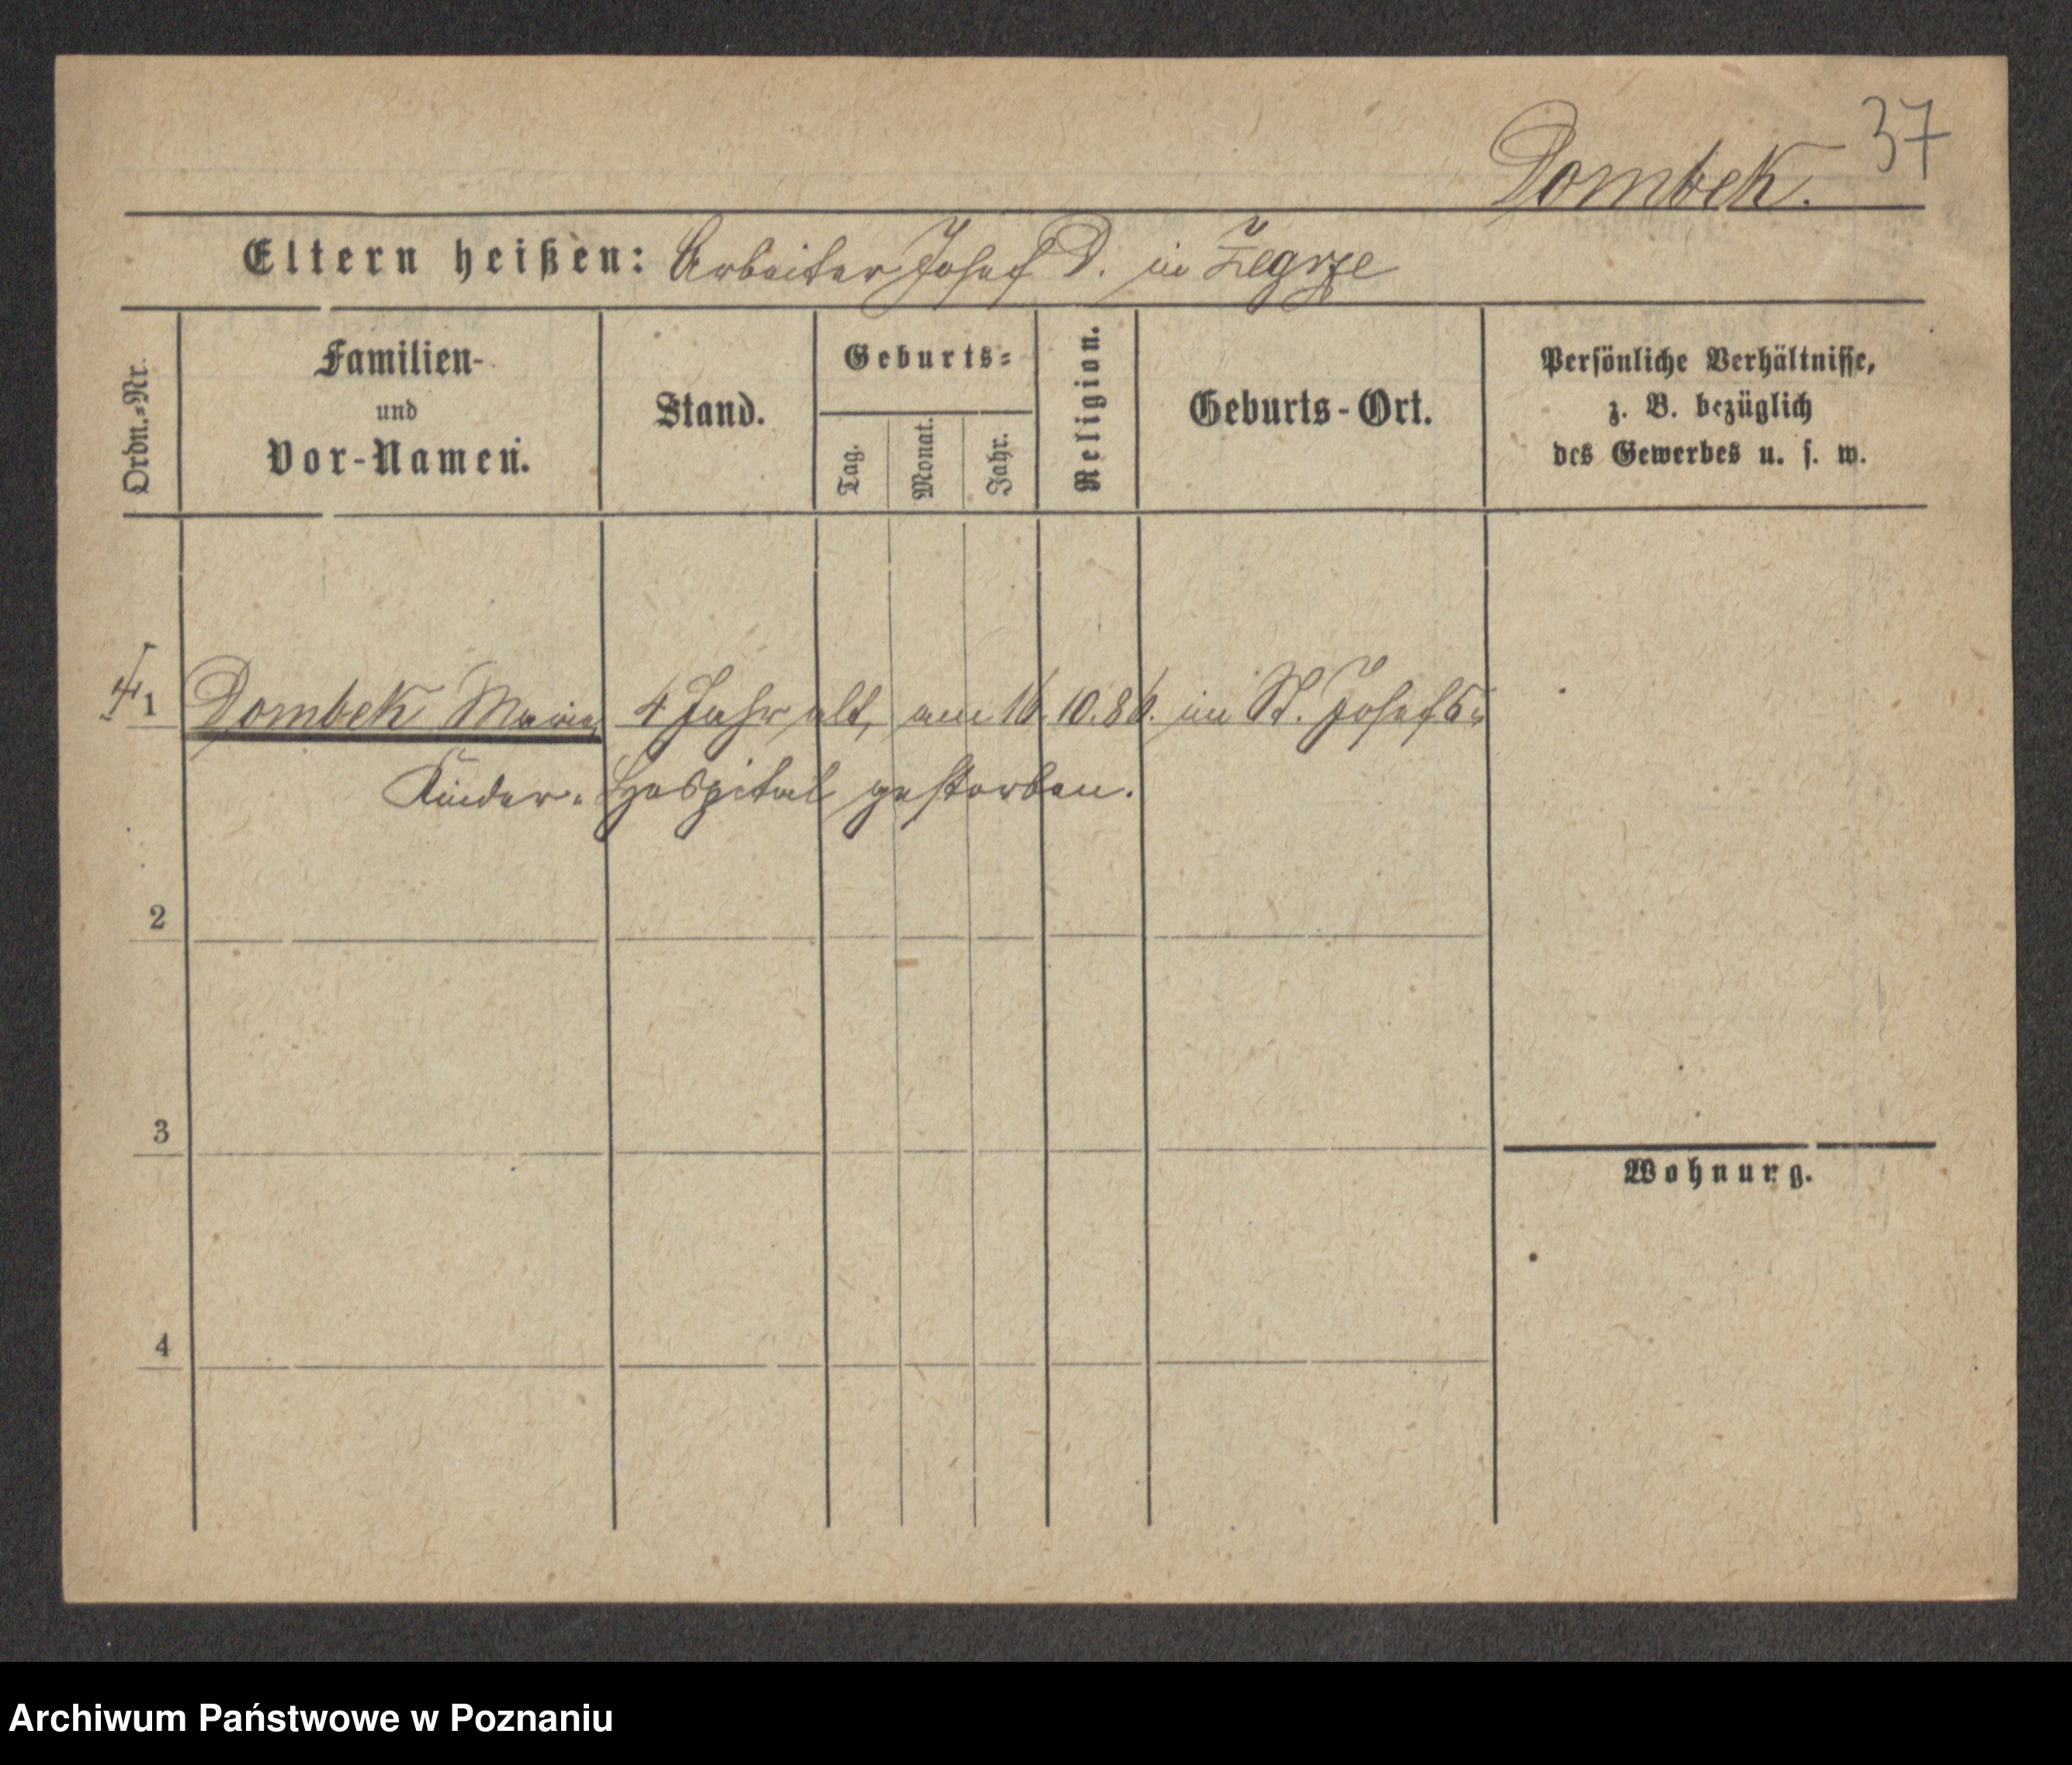 37
Dombek.
Eltern heißen: Arbeiter Josef D. in Zegrze
Ordn.=Nr.
Familien-
und
Vor-Namen.
Stand.
Geburts=
Tag.
Monat.
Jahr.
Religion.
Geburts-Ort.
Persönliche Verhältnisse,
z. B. bezüglich
des Gewerbes u. s. w.
1 Dombek Maria, 4 Jahr alt, am 16.10.86. im St. Josefs-
Kinder-Hospital gestorben.
2
3
Wohnung.
4
Archiwum Państwowe w Poznaniu